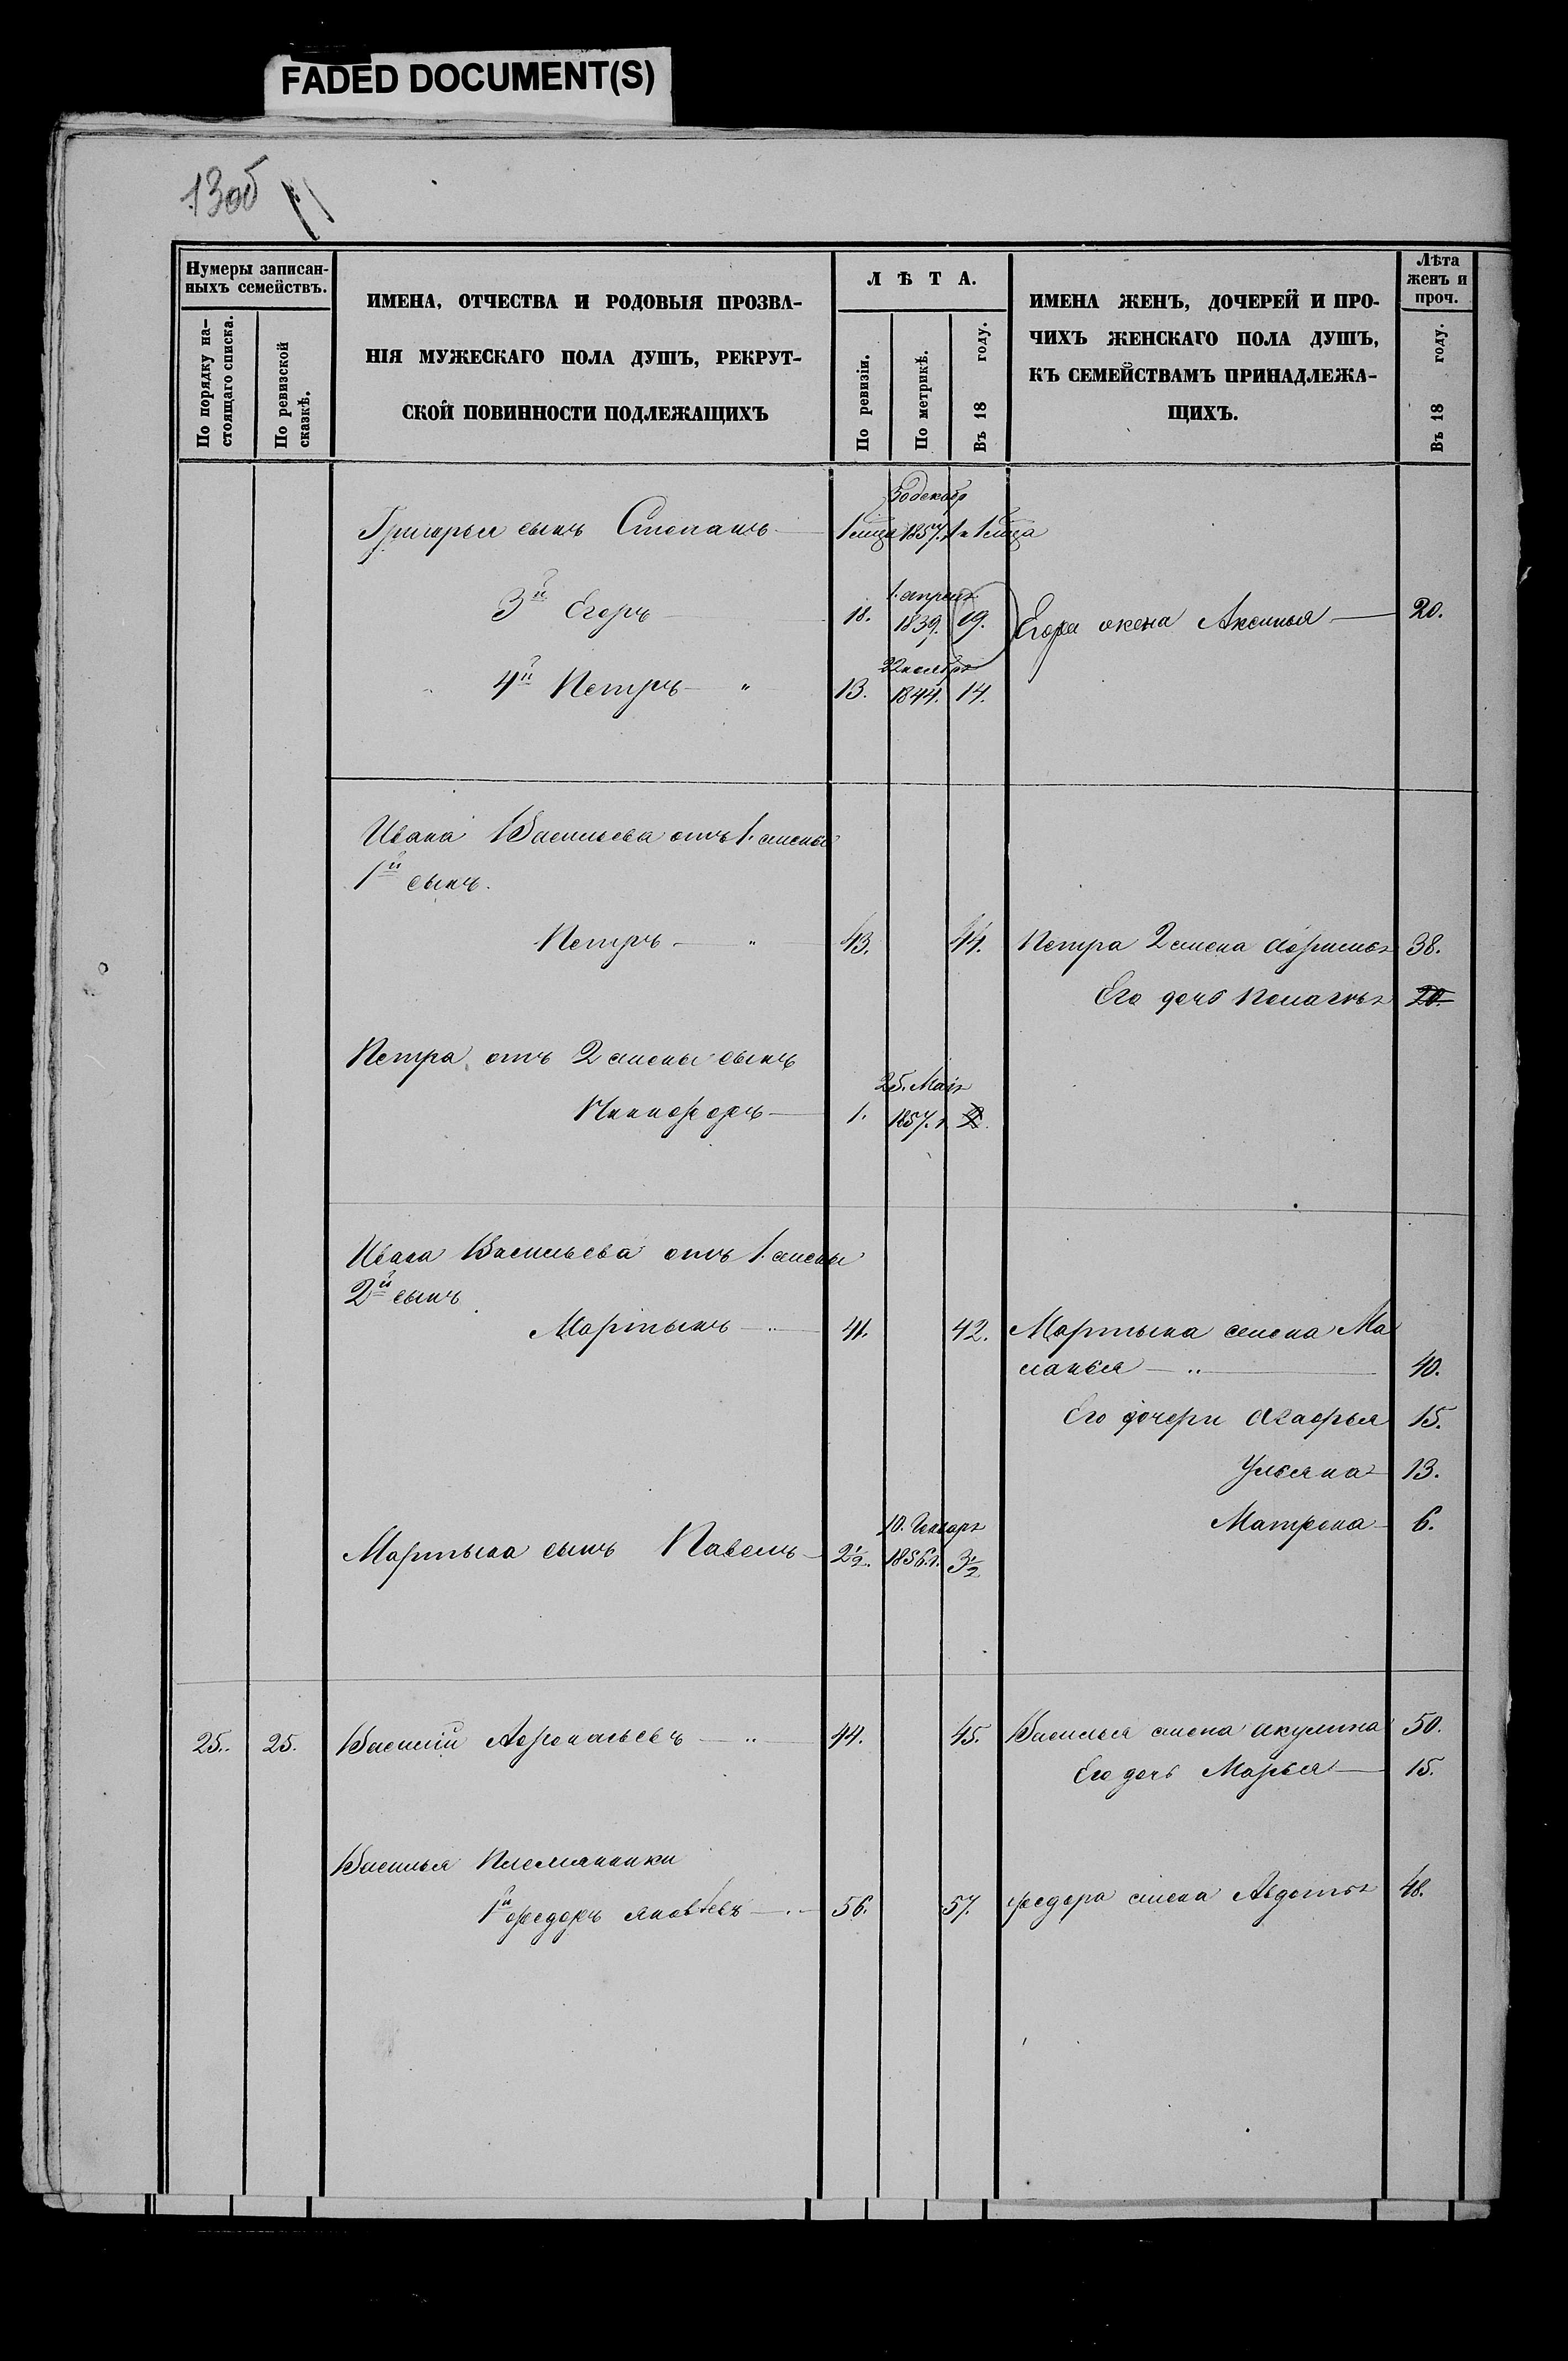 FADED DOCUMENT(S)
13об
Нумеры записан-
ныхъ семействъ.
По порядку на-
стоящаго списка.
По ревизской
сказкѣ.
ИМЕНА, ОТЧЕСТВА И РОДОВЫЯ ПРОЗВА-
НІЯ МУЖЕСКАГО ПОЛА ДУШЪ, РЕКРУТ-
СКОЙ ПОВИННОСТИ ПОДЛЕЖАЩИХЪ
ЛѢТА.
По ревизіи.
По метрикѣ.
Въ 18 году.
ИМЕНА ЖЕНЪ, ДОЧЕРЕЙ И ПРО-
ЧИХЪ ЖЕНСКАГО ПОЛА ДУШЪ,
КЪ СЕМЕЙСТВАМЪ ПРИНАДЛЕЖА-
ЩИХЪ.
Лѣта
женъ и
проч.
Въ 18 году.
декабр
Григорья сынъ Степанъ 1 мца 1857. 1 и 1 мца
1. апреля
3й Егоръ 18. 1839. 19. Егора жена Аксинья 20.
22 ноября
4й Петръ " 13. 1844. 14.
Ивана Васильева отъ 1. жены
1й сынъ.
Петръ " 43. 44. Петра 2 жена Афимья 38.
Его дочь Пелагея 20.
Петра отъ 2 жены сынъ
25. Мая
Никифоръ 1. 1857. г. 2.
Ивана Васильева отъ 1. жены
2й сынъ
Мартынъ " 41. 42. Мартына жена Ма
ланья " 40.
Его дочери Агафья 15.
Ульяна 13.
Матрена 6.
10. Генваря
Мартына сынъ Павелъ 2½. 1856. г. 3½
25. 25. Василій Афонасьевъ " 44. 45. Василья жена Акулина 50.
Его дочь Марья 15.
Василья Племянники
1й Федоръ Яковлевъ 56. 57. Федора жена Авдотья 48.